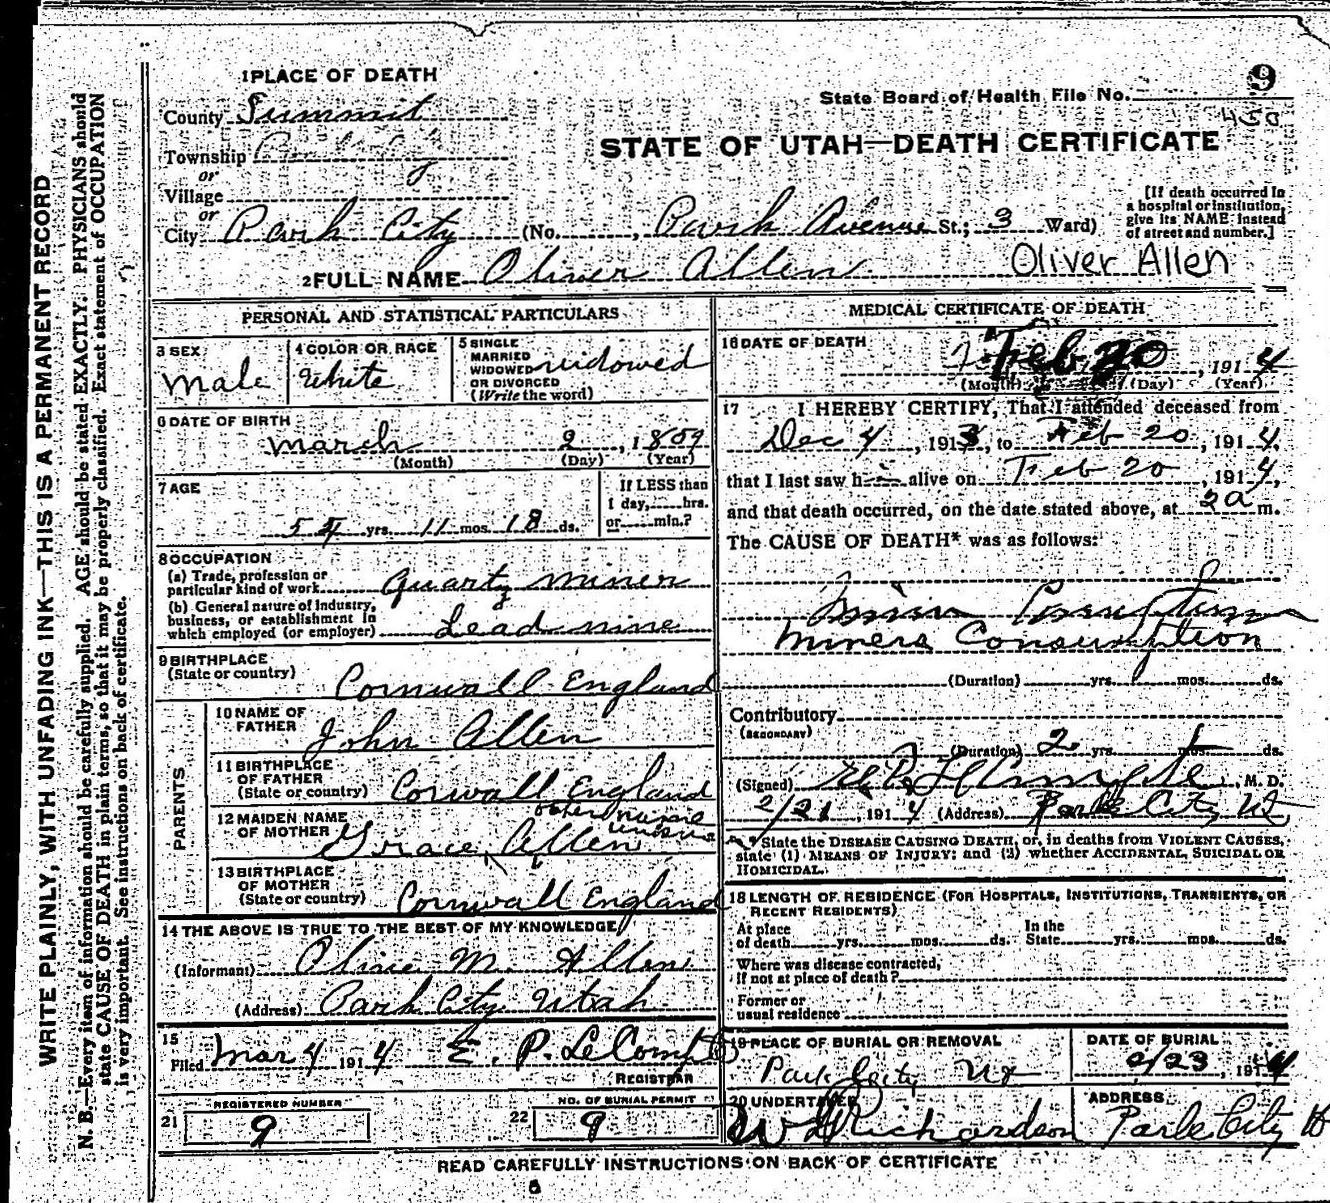 9
1 PLACE OF DEATH
State Board of Health File No.
450
County Summit
STATE OF UTAH—DEATH CERTIFICATE
Township
or
Village
or
City Park City (No. , Park Avenue St.; 3 Ward)
[If death occurred in a hospital or institution, give its NAME instead of street and number.]
2 FULL NAME Oliver Allen Oliver Allen
PERSONAL AND STATISTICAL PARTICULARS
3 SEX Male
4 COLOR OR RACE White
5 SINGLE MARRIED WIDOWED OR DIVORCED (Write the word) widowed
6 DATE OF BIRTH March 2, 1859
(Month) (Day) (Year)
7 AGE 54 yrs. 11 mos. 18 ds.
If LESS than 1 day, hrs. or min.?
8 OCCUPATION
(a) Trade, profession or particular kind of work Quartz miner
(b) General nature of Industry, business, or establishment in which employed (or employer) Lead mine
9 BIRTHPLACE (State or country) Cornwall England
PARENTS
10 NAME OF FATHER John Allen
11 BIRTHPLACE OF FATHER (State or country) Corwall England
12 MAIDEN NAME OF MOTHER Grace Allen
other name
13 BIRTHPLACE OF MOTHER (State or country) Cornwall England
14 THE ABOVE IS TRUE TO THE BEST OF MY KNOWLEDGE
(Informant) M. Allen
(Address) Park City Utah
15 Filed Mar 4 1914 E. P. LeCompte
REGISTRAR
21 REGISTERED NUMBER 9
22 NO. OF BURIAL PERMIT 9
MEDICAL CERTIFICATE OF DEATH
16 DATE OF DEATH Feb 20, 1914
(Month) (Day) (Year)
17 I HEREBY CERTIFY, That I attended deceased from
Dec 4, 1913, to Feb 20, 1914,
that I last saw h alive on Feb 20, 1914,
and that death occurred, on the date stated above, at 2 a m.
The CAUSE OF DEATH* was as follows:
Miners Consumption
Miners Consumption
(Duration) yrs. mos. ds.
Contributory (SECONDARY)
(Duration) 2 yrs. mos. ds.
(Signed) M. D.
2/21, 1914 (Address) Park City Ut
* State the DISEASE CAUSING DEATH, or, in deaths from VIOLENT CAUSES, state (1) MEANS OF INJURY; and (2) whether ACCIDENTAL, SUICIDAL OR HOMICIDAL.
18 LENGTH OF RESIDENCE (FOR HOSPITALS, INSTITUTIONS, TRANSIENTS, OR RECENT RESIDENTS)
At place of death yrs. mos. ds. In the State yrs. mos. ds.
Where was disease contracted, If not at place of death?
Former or usual residence
19 PLACE OF BURIAL OR REMOVAL Park City Ut
DATE OF BURIAL 2/23, 1914
20 UNDERTAKER Richardson
ADDRESS Park City Ut
READ CAREFULLY INSTRUCTIONS ON BACK OF CERTIFICATE
WRITE PLAINLY, WITH UNFADING INK—THIS IS A PERMANENT RECORD
N. B.—Every item of information should be carefully supplied. AGE should be stated EXACTLY. PHYSICIANS should
state CAUSE OF DEATH in plain terms, so that it may be properly classified. Exact statement of OCCUPATION
is very important. See instructions on back of certificate.